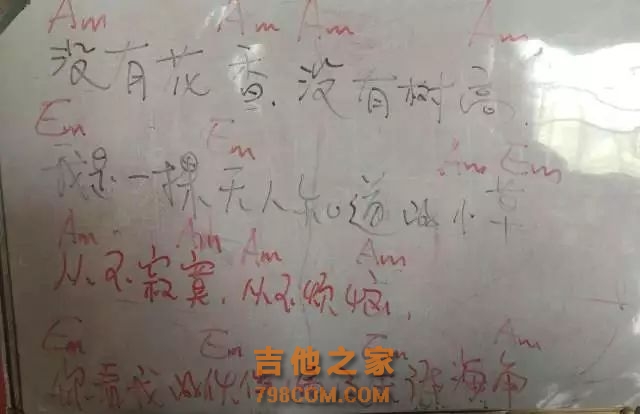 Am Am Am Am
没有花香,没有树高,
Em Em Am Em
我是一棵无人知道的小草
Am Am Am Am
从不寂寞,从不烦恼,
Em Em Em Am
你看我的伙伴 天涯海角
吉他之家
798COM.COM